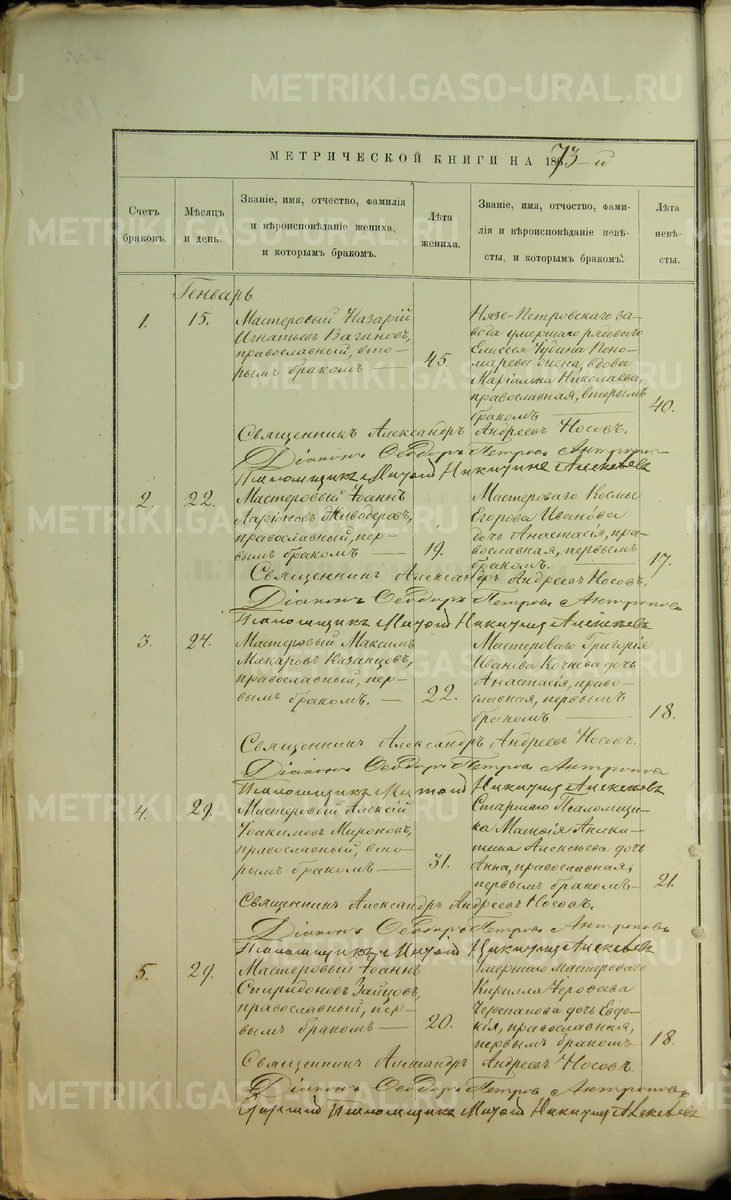 МЕТРИЧЕСКОЙ КНИГИ НА 1873-й
Счетъ браковъ.
Мѣсяцъ и день.
Званіе, имя, отчество, фамилія и вѣроисповѣданіе жениха, и которымъ бракомъ.
Лѣта жениха.
Званіе, имя, отчество, фамилія и вѣроисповѣданіе невѣсты, и которымъ бракомъ.
Лѣта невѣсты.
Генварь
1.
15.
Мастеровый Назарій
Игнатьевъ Вагановъ,
православный, вто-
рымъ бракомъ
45.
Нязе-Петровскаго за-
вода умершаго рядоваго
Елисея Чудина Поно-
марева жена, вдова
Николаева,
православная, вторымъ
бракомъ
40.
Священникъ Александръ Андреевъ Носовъ.
Діаконъ Ѳеодоръ Петровъ Антроповъ
Псаломщикъ Никитинъ Алексѣевъ
2.
22.
Мастеровый Іоаннъ
Ларіоновъ Живодеровъ,
православный, пер-
вымъ бракомъ
19.
Мастероваго Космы
Егорова Иванова
дочь Анастасія, пра-
вославная, первымъ
бракомъ.
17.
Священникъ Александръ Андреевъ Носовъ.
Діаконъ Ѳеодоръ Петровъ Антроповъ
Псаломщикъ Никитинъ Алексѣевъ
3.
24.
Мастеровый Максимъ
Макаровъ Казанцовъ,
православный, пер-
вымъ бракомъ.
22.
Мастероваго Григорія
Иванова дочь
Анастасія, право-
славная, первымъ
бракомъ
18.
Священникъ Александръ Андреевъ Носовъ.
Діаконъ Ѳеодоръ Петровъ Антроповъ
Псаломщикъ Никитинъ Алексѣевъ
4.
29.
Мастеровый Алексій
Іоакимовъ Мироновъ,
православный, вто-
рымъ бракомъ
31.
Старшаго Псаломщи-
ка Матѳія Аники-
тина Алексѣева дочь
Анна, православная,
первымъ бракомъ
21.
Священникъ Александръ Андреевъ Носовъ.
Діаконъ Ѳеодоръ Петровъ Антроповъ
Псаломщикъ Никитинъ Алексѣевъ
5.
29.
Мастеровый Іоаннъ
Спиридоновъ Зайцовъ,
православный, пер-
вымъ бракомъ
20.
Умершаго Мастероваго
Кирилла Ерофеева
Черепанова дочь Евдо-
кія, православная,
первымъ бракомъ
18.
Священникъ Александръ Андреевъ Носовъ.
Діаконъ Ѳеодоръ Петровъ Антроповъ
Старшій Псаломщикъ Никитинъ Алексѣевъ
METRIKI.GASO-URAL.RU